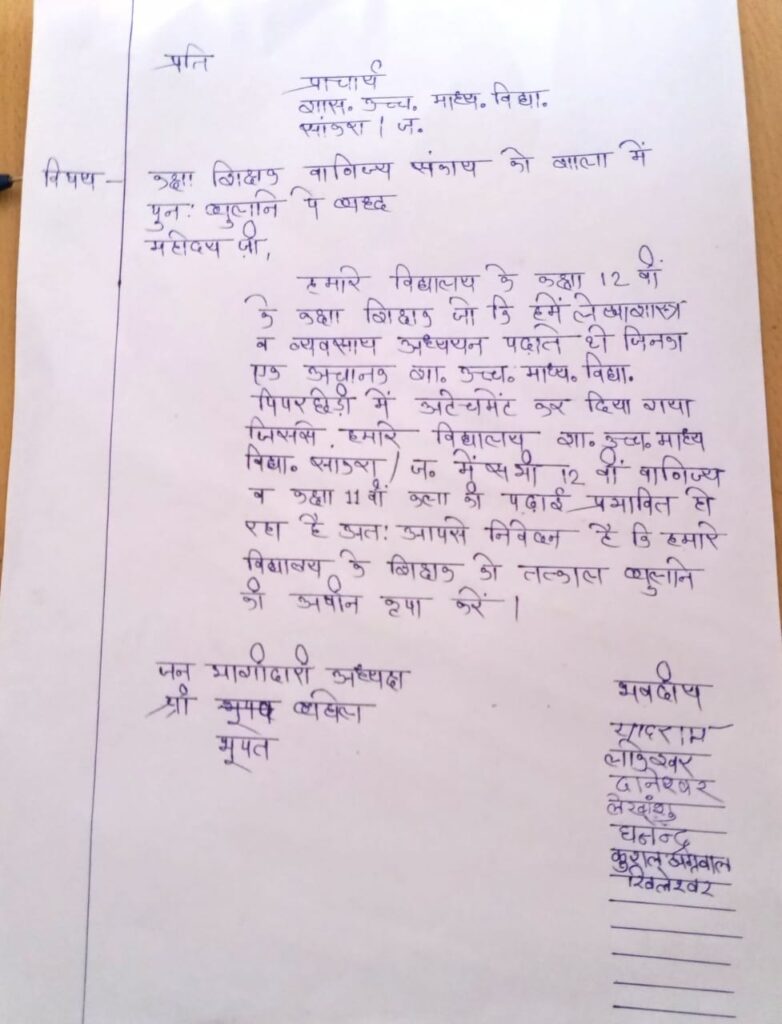 प्रति
प्राचार्य
शास. उच्च. माध्य. विद्या.
सांकरा / ज.
विषय - कक्षा शिक्षक वाणिज्य संकाय को शाला में
पुनः बुलाने
महोदय जी,
हमारे विद्यालय के कक्षा 12 वीं
के कक्षा शिक्षक जो कि हमें लेखाशास्त्र
व व्यवसाय अध्ययन पढ़ाते थे जिनका
एक अचानक शा. उच्च. माध्य. विद्या.
पिपरछेड़ी में अटेचमेंट कर दिया गया
जिससे हमारे विद्यालय शा. उच्च. माध्य
विद्या. सांकरा / ज. में सभी 12 वीं वाणिज्य
व कक्षा 11 वीं कला की पढ़ाई प्रभावित हो
रहा है अतः आपसे निवेदन है कि हमारे
विद्यालय के शिक्षक को तत्काल बुलाने
की कृपा करें ।
जन भागीदारी अध्यक्ष
श्री
भूपत
भवदीय
लोकेश्वर
दानेश्वर
घनेन्द्र
कुशल अग्रवाल
खिलेश्वर